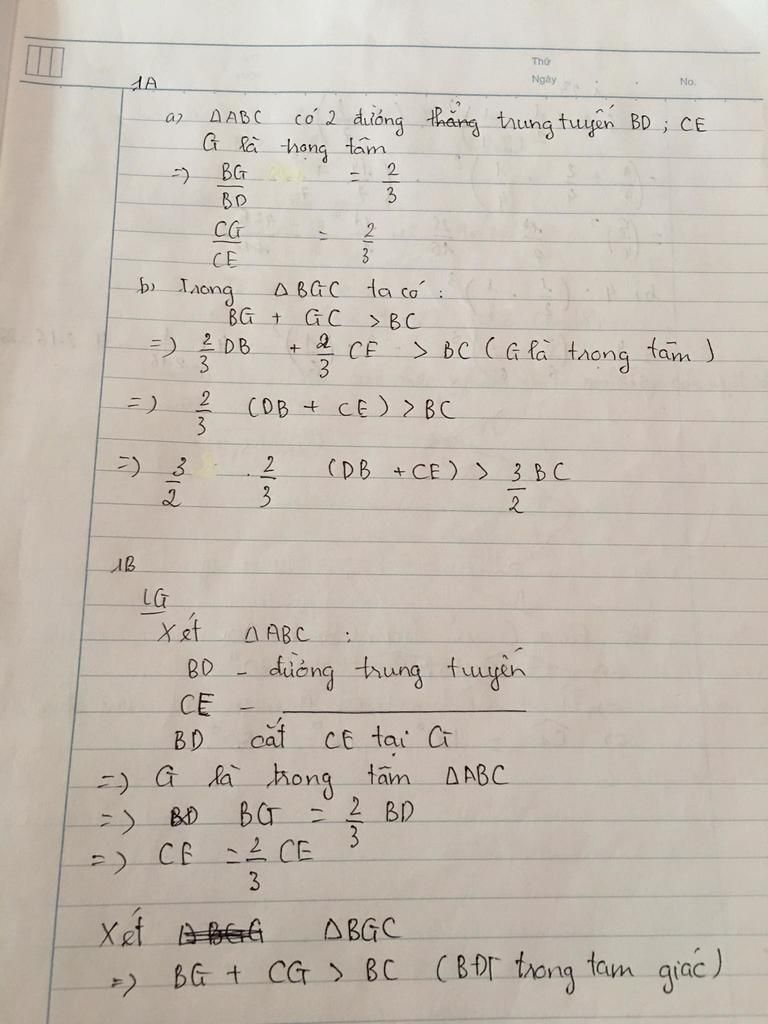 Thứ
Ngày . . No.
1A
a) ΔABC có 2 đường thẳng trung tuyến BD ; CE
G là trọng tâm
=) BG/BD = 2/3
CG/CE = 2/3
b) Trong ΔBGC ta có :
BG + GC > BC
=) 2/3 DB + 2/3 CE > BC ( G là trọng tâm )
=) 2/3 (DB + CE) > BC
=) 3/2 . 2/3 (DB + CE) > 3/2 BC
1B
LG
Xét ΔABC :
BD - đường trung tuyến
CE - ————
BD cắt CE tại G
=) G là trong tâm ΔABC
=) BD BG = 2/3 BD
=) CE = 2/3 CE
Xét Δ BGG ΔBGC
=) BG + CG > BC (BĐT trong tam giác)